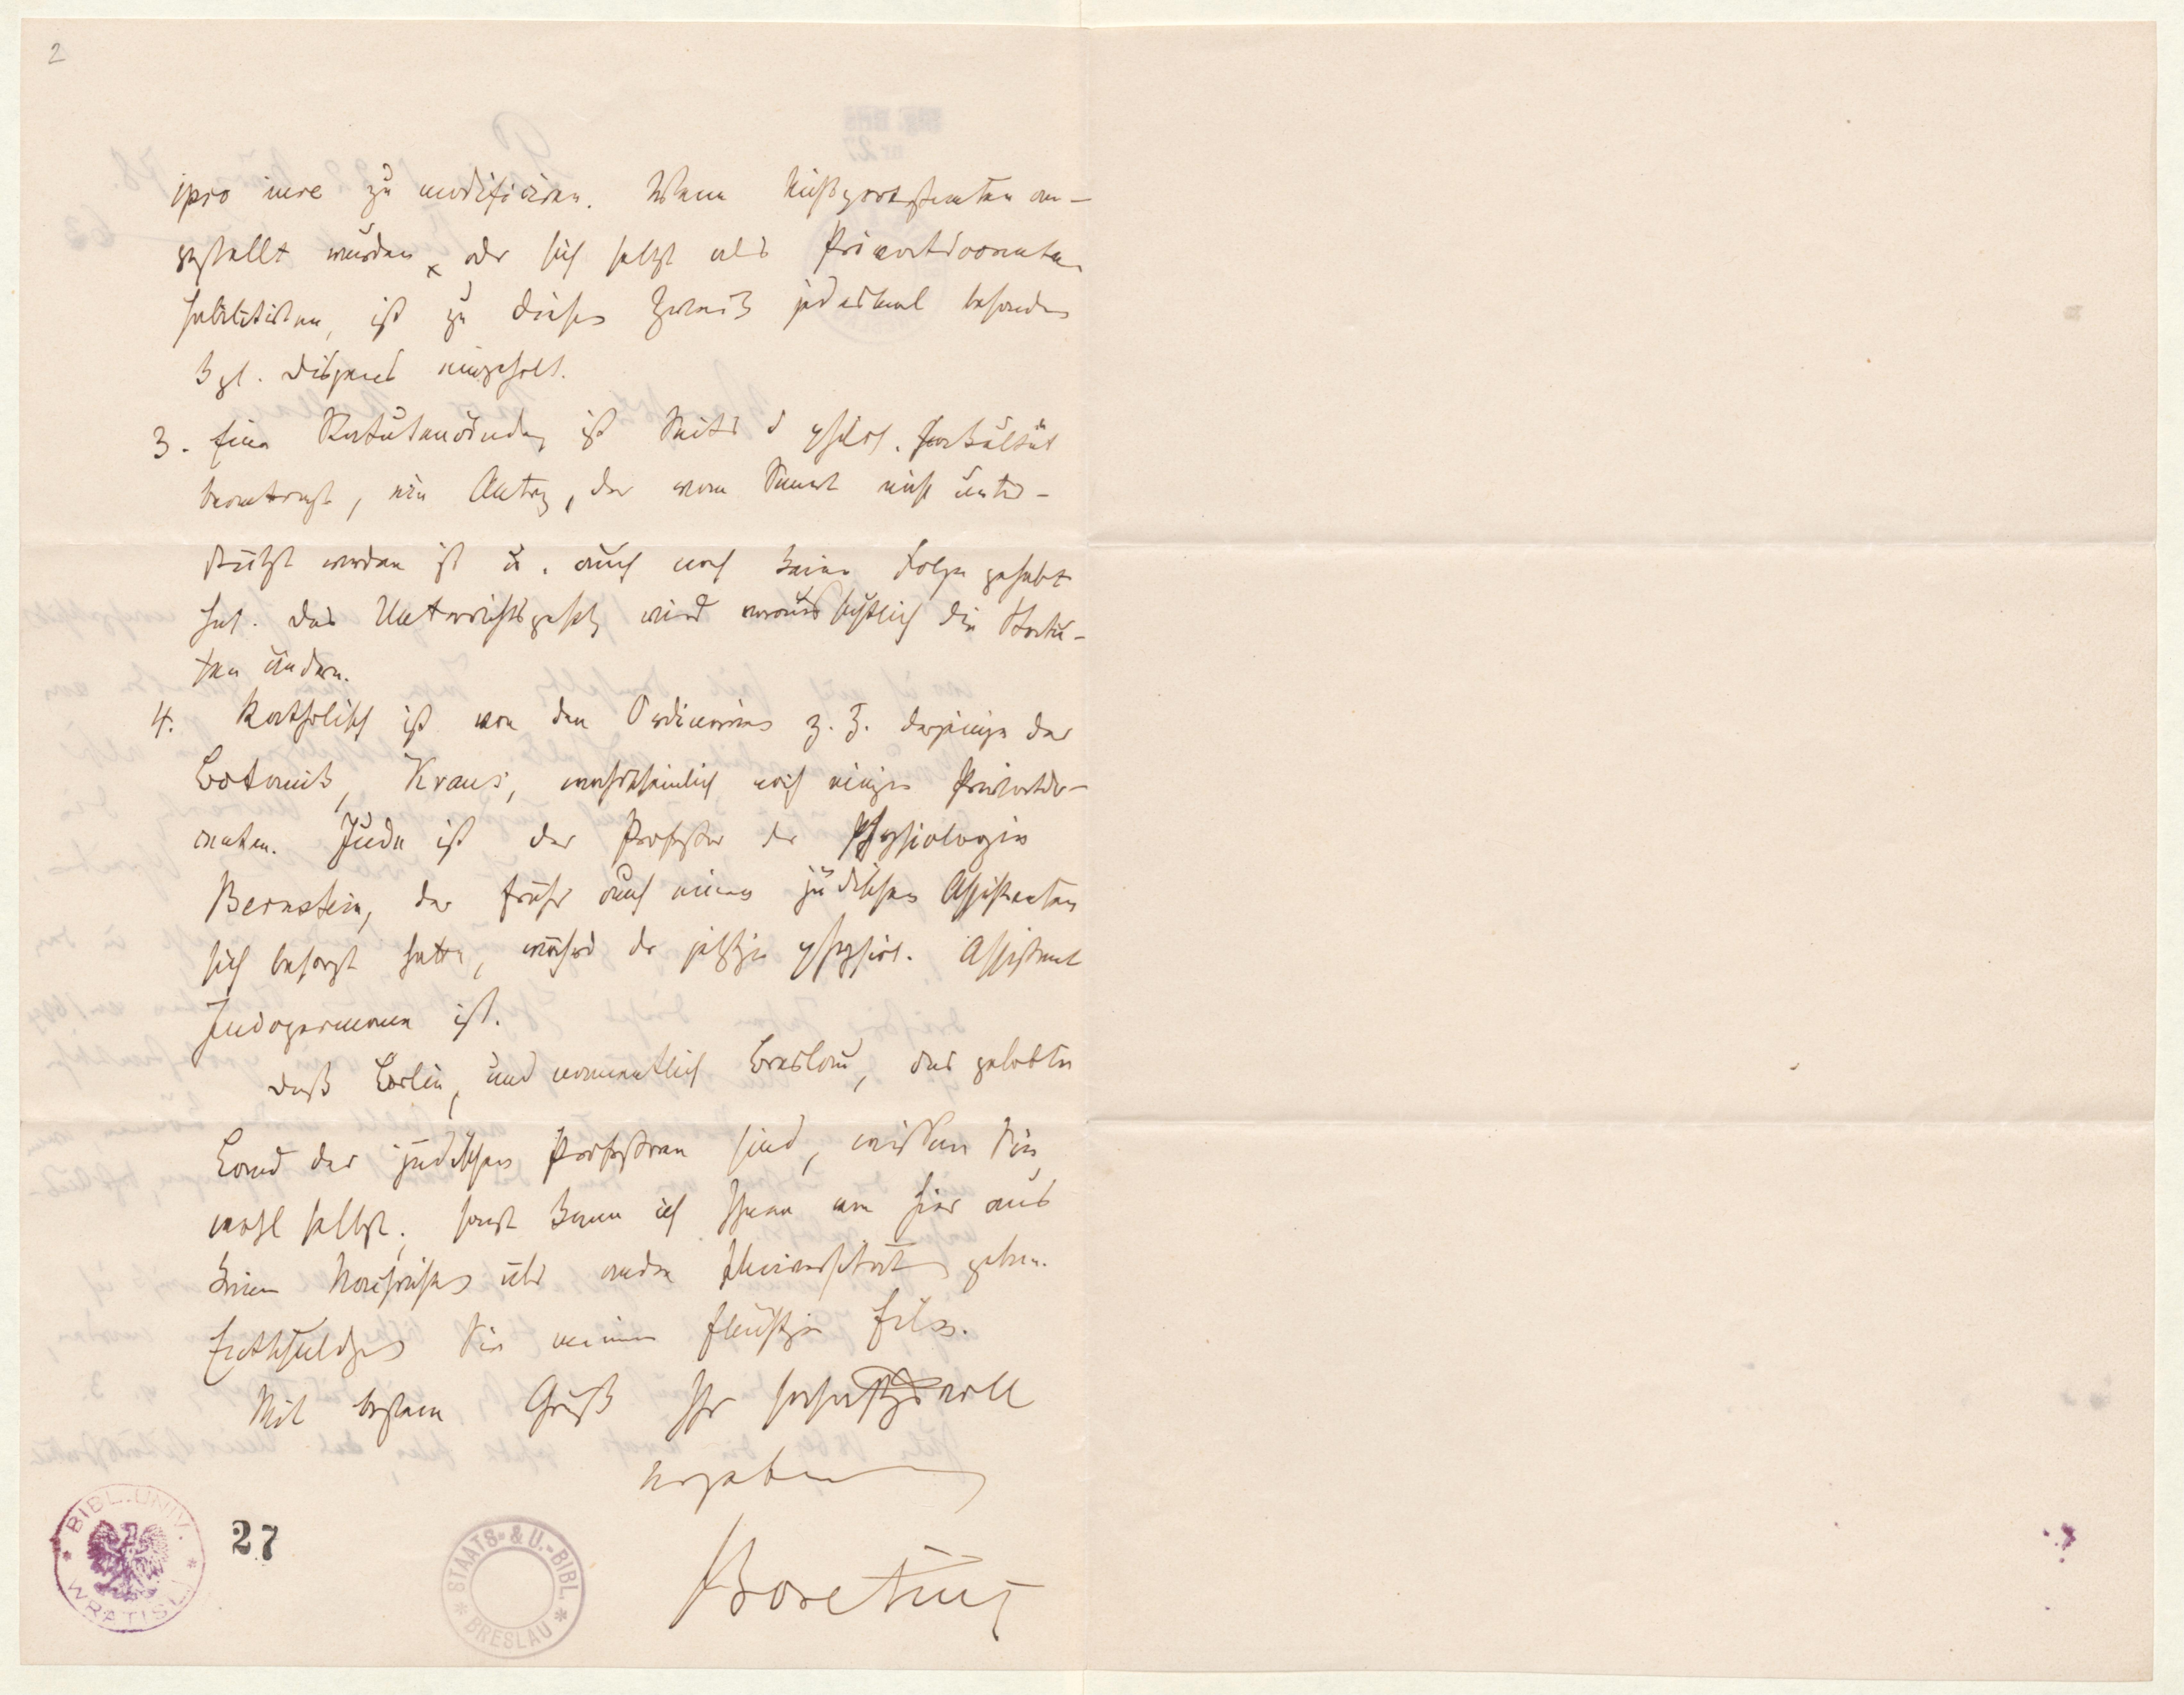 2
ipso iure zu modificiren. Wenn Nichtprotestanten an-
gestellt wurden x oder sich selbst als Privatdocenten
habilitirten, ist zu diesem Zweck jedesmal besonders
Kgl. Dispens eingeholt.
3. Eine Statutenändrung ist Seitens d philos. Facultät
beantragt, ein Antrag, der vom Senat nicht unter-
stützt worden ist u. auch noch keine Folge gehabt
hat. Das Unterrichtsgesetz wird voraussichtlich die Statu-
ten ändern.
4. Katholisch ist von den Ordinarien z. Z. derjenige der
Botanik, Kraus, wahrscheinlich noch einige Privatdo-
centen. Jude ist der Professor der Physiologie
Bernstein, der früher auch einen jüdischen Assistenten
sich besorgt hatte, während der jetzige physiol. Assistent
Indogermane ist.
Daß Berlin, und namentlich Breslau, das gelobte
Land der jüdischen Professoren sind, wissen Sie
wohl selbst; sonst kann ich Ihnen von hier aus
keine Nachrichten über andre Universitäten geben.
Entschuldigen Sie meine flüchtige Eile.
Mit bestem Gruß Ihr hochachtungsvoll
ergebener
Boretius
BIBL. UNIV. WRATISL.
27
STAATS- & U.-BIBL. BRESLAU